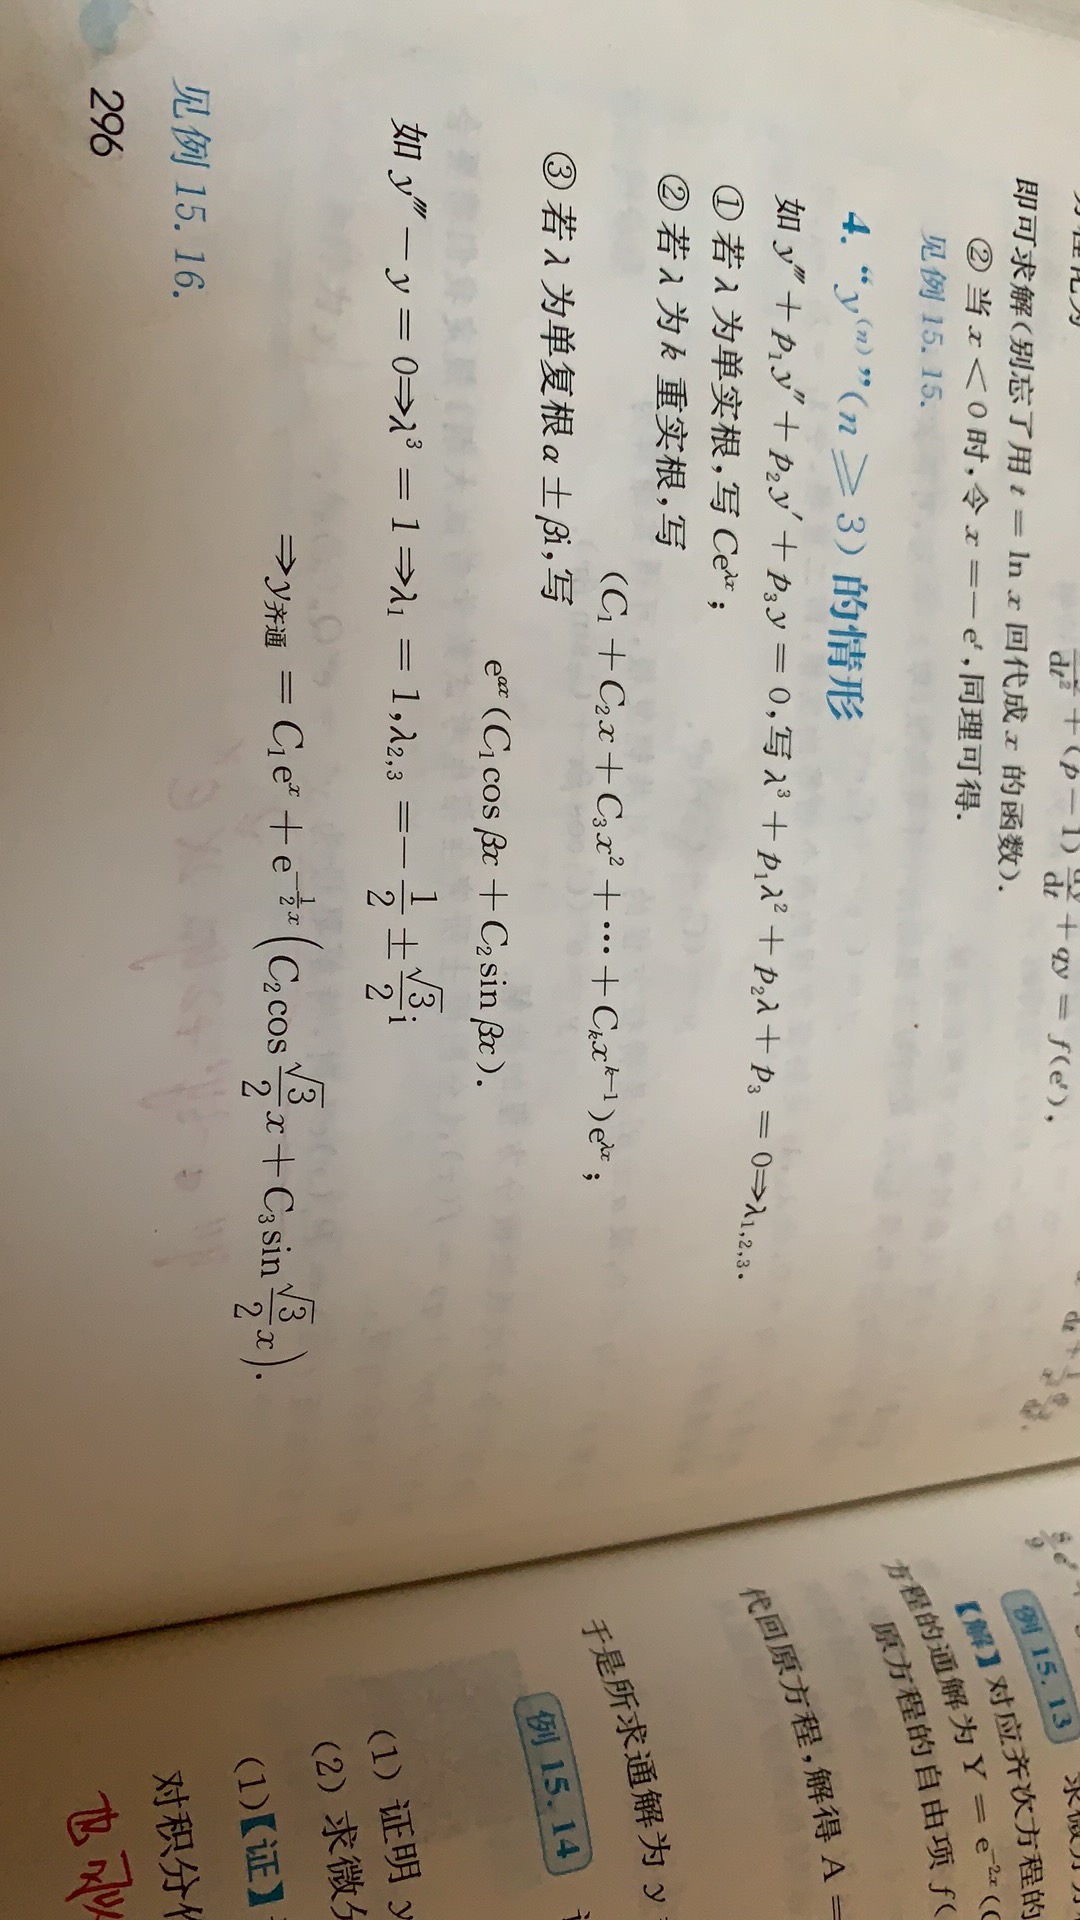 即可求解(别忘了用 t = ln x 回代成 x 的函数).
② 当 x < 0 时,令 x = − eᵗ,同理可得.
见例 15.15.
4. “y⁽ⁿ⁾”(n ⩾ 3) 的情形
如 y‴ + p₁y″ + p₂y′ + p₃y = 0,写 λ³ + p₁λ² + p₂λ + p₃ = 0⇒λ₁,₂,₃.
① 若 λ 为单实根,写 Ce^{λx};
② 若 λ 为 k 重实根,写
(C₁ + C₂x + C₃x² + ⋯ + Cₖx^{k−1})e^{λx};
③ 若 λ 为单复根 α ± βi,写
e^{αx}(C₁cos βx + C₂sin βx).
如 y‴ − y = 0⇒λ³ = 1⇒λ₁ = 1,λ₂,₃ = − 1/2 ± √3/2 i
⇒y齐通 = C₁eˣ + e^{−1/2 x}(C₂cos √3/2 x + C₃sin √3/2 x).
见例 15.16.
296
例 15.13
【解】对应齐次方程的
方程的通解为 Y = e^{−2x}(C
原方程的自由项 f(
代回原方程,解得 A =
于是所求通解为 y
例 15.14
(1) 证明 y
(2) 求微分
(1)【证】
对积分作
也可以